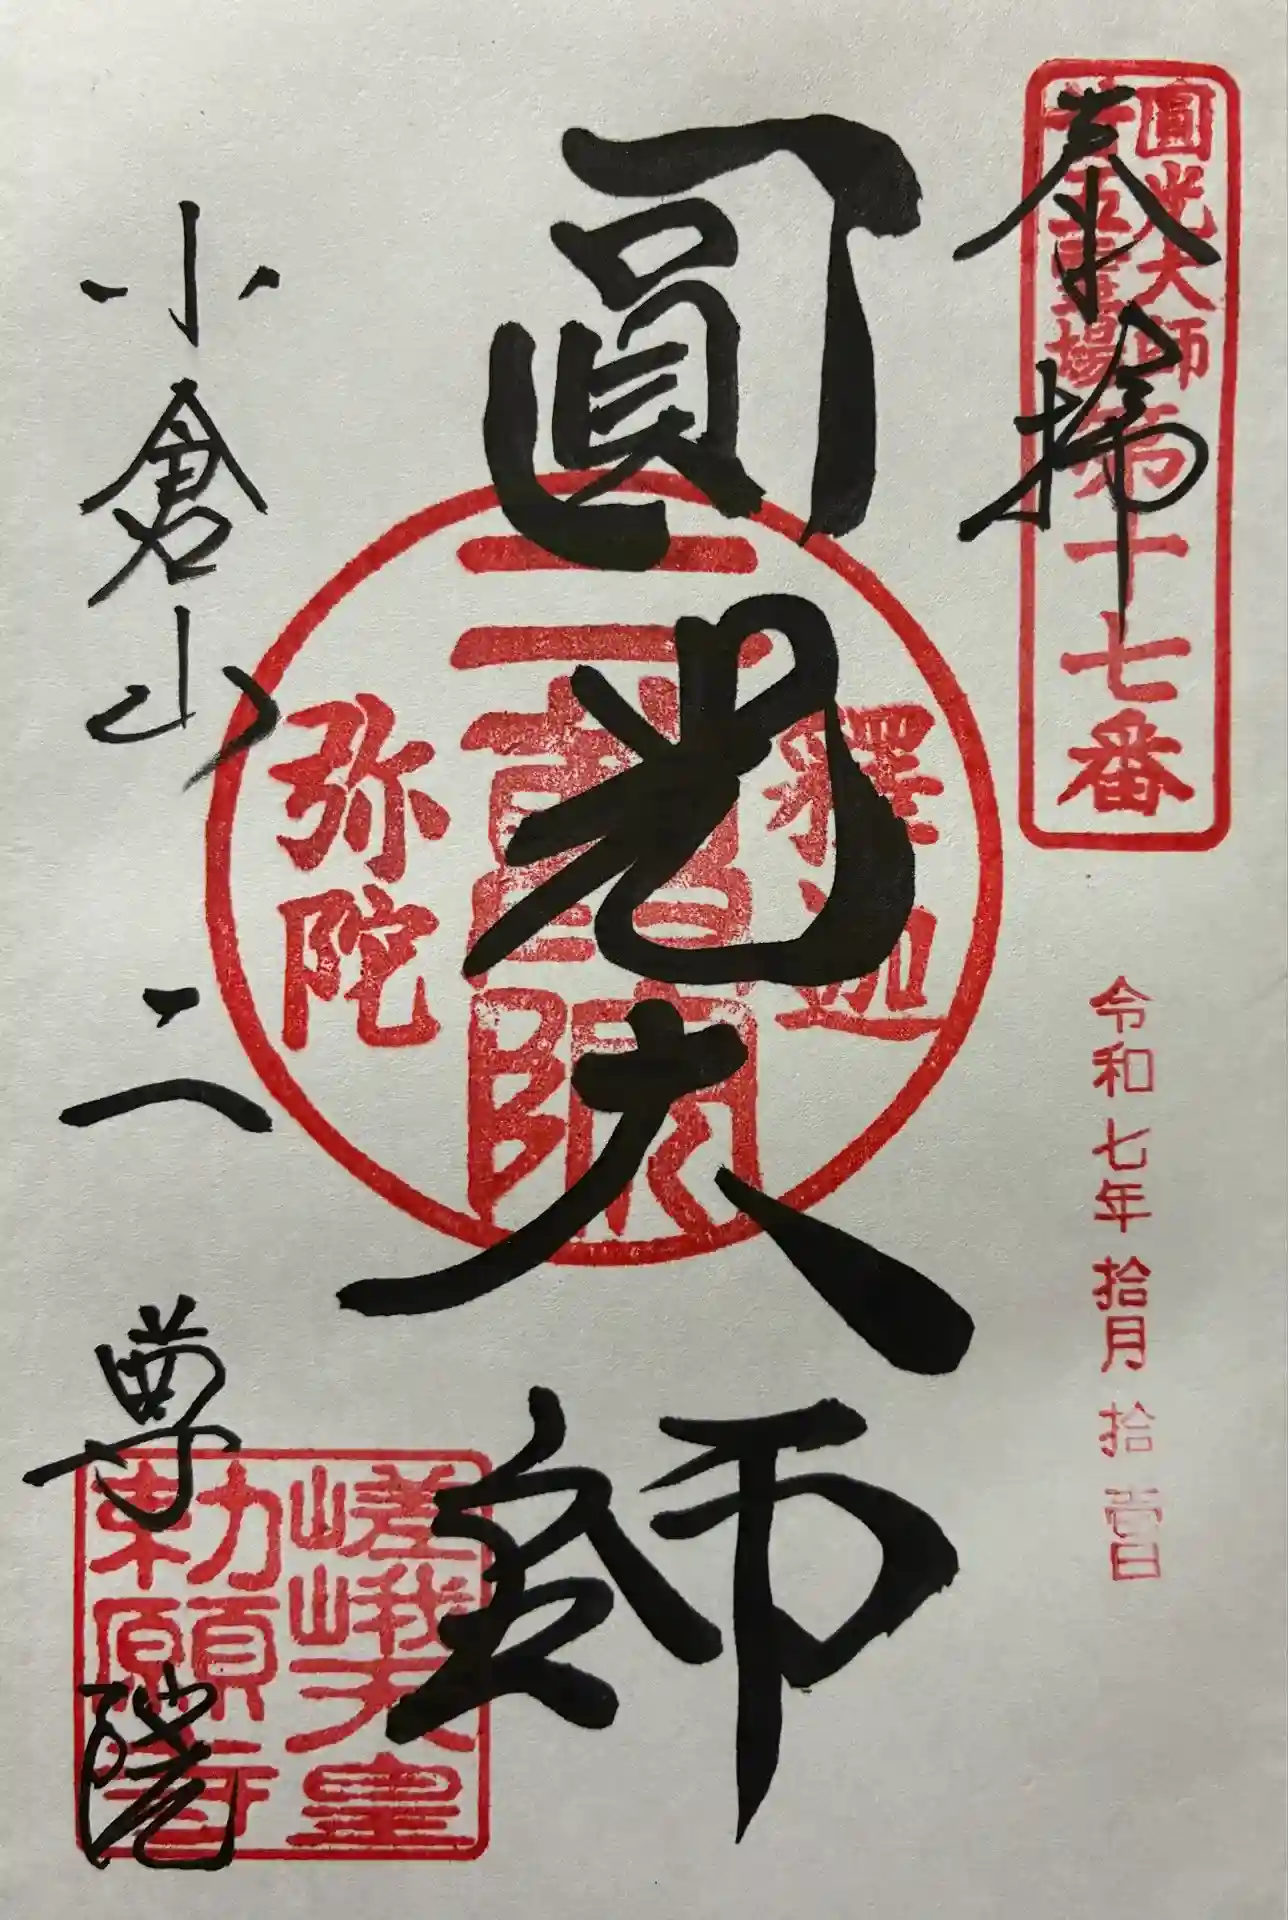 奉拝
圓光大師
廿五霊場
第十七番
令和七年拾月拾壹日
圓光大師
釋迦
二尊院
弥陀
小倉山
二尊院
嵯峨天皇
勅願寺